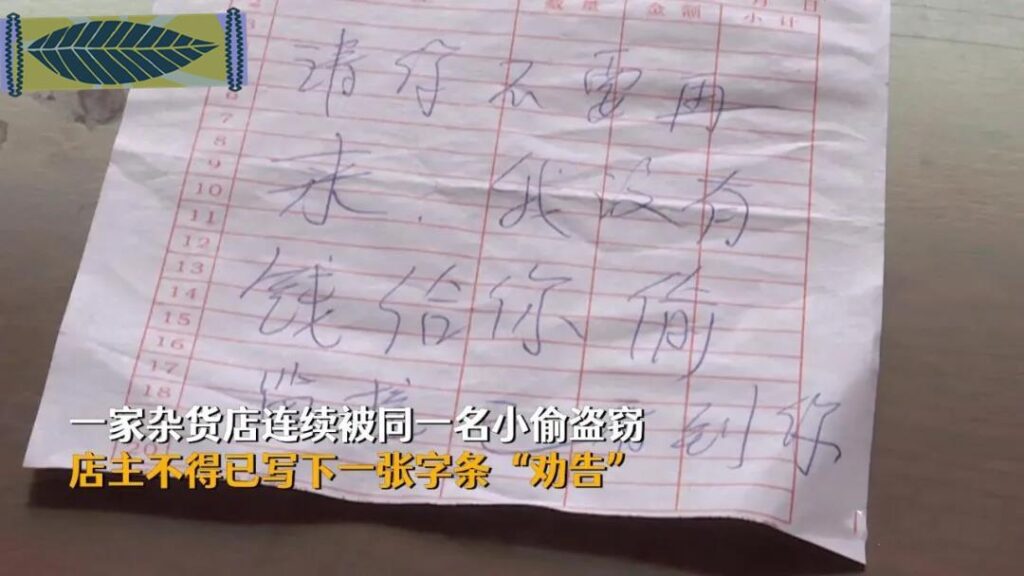 月 日
数量 金额 小计
请你不要再
来，我没有
钱给你偷
到你
6
7
8
9
10
11
12
13
14
15
16
17
18
一家杂货店连续被同一名小偷盗窃
店主不得已写下一张字条“劝告”